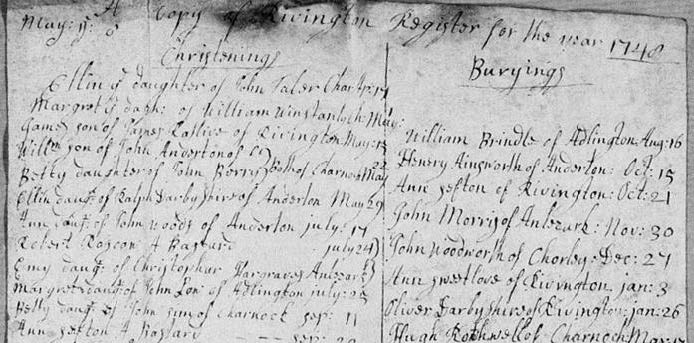 A Copy of Rivington Register for the year 1748
May: y:
Christenings
Ellin ye daughter of John Taler Char: Apr: 17
Margret ye daph: of William Winstanloch: May:
James son of James Ratlive of Rivington May: 15
Willm son of John Anderton of
Betty daughter of John Berry Both of Charnock May 22
Ellin daugt: of Ralph Darbyshire of Anderton May 29
Ann daugt: of John Woods of Anderton july: 17
Robert Roscow A Bastard july 24
Emy daug: of Christophur Hargraves Anlezark
Margret daugt: of John Low of Adlington july:
Betty daugt: of John Gun of Charnock sep: 11
Ann Sefton A Bastard sep:
Buryings
William Brindle of Adlington Aug: 16
Henery Ainsworth of Anderton: Oct: 15
Ann Sefton of Rivington: Oct: 21
John Morris of Anlezark: Nov: 30
John Woodworth of Chorley: Dec: 27
Ann Sweetlove of Rivington jan: 3
Oliver Darbyshire of Rivington: jan: 26
Hugh Rothwell of Charnoch Mar: